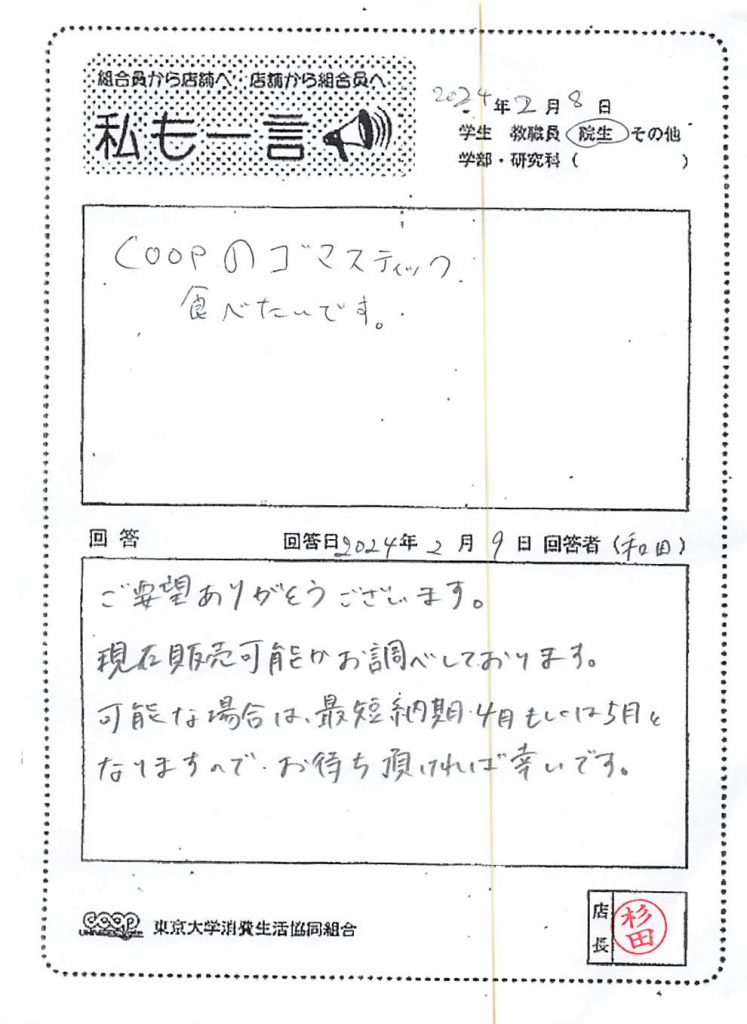 組合員から店舗へ 店舗から組合員へ
私も一言
2024年2月8日
学生 教職員 院生 その他
学部・研究科( )
COOPのゴマスティック
食べたいです。
回答 回答日2024年2月9日 回答者(和田)
ご要望ありがとうございます。
現在販売可能かお調べしております。
可能な場合は、最短納期・4月もしくは5月と
なりますので、お待ち頂ければ幸いです。
coop 東京大学消費生活協同組合
店長 杉田